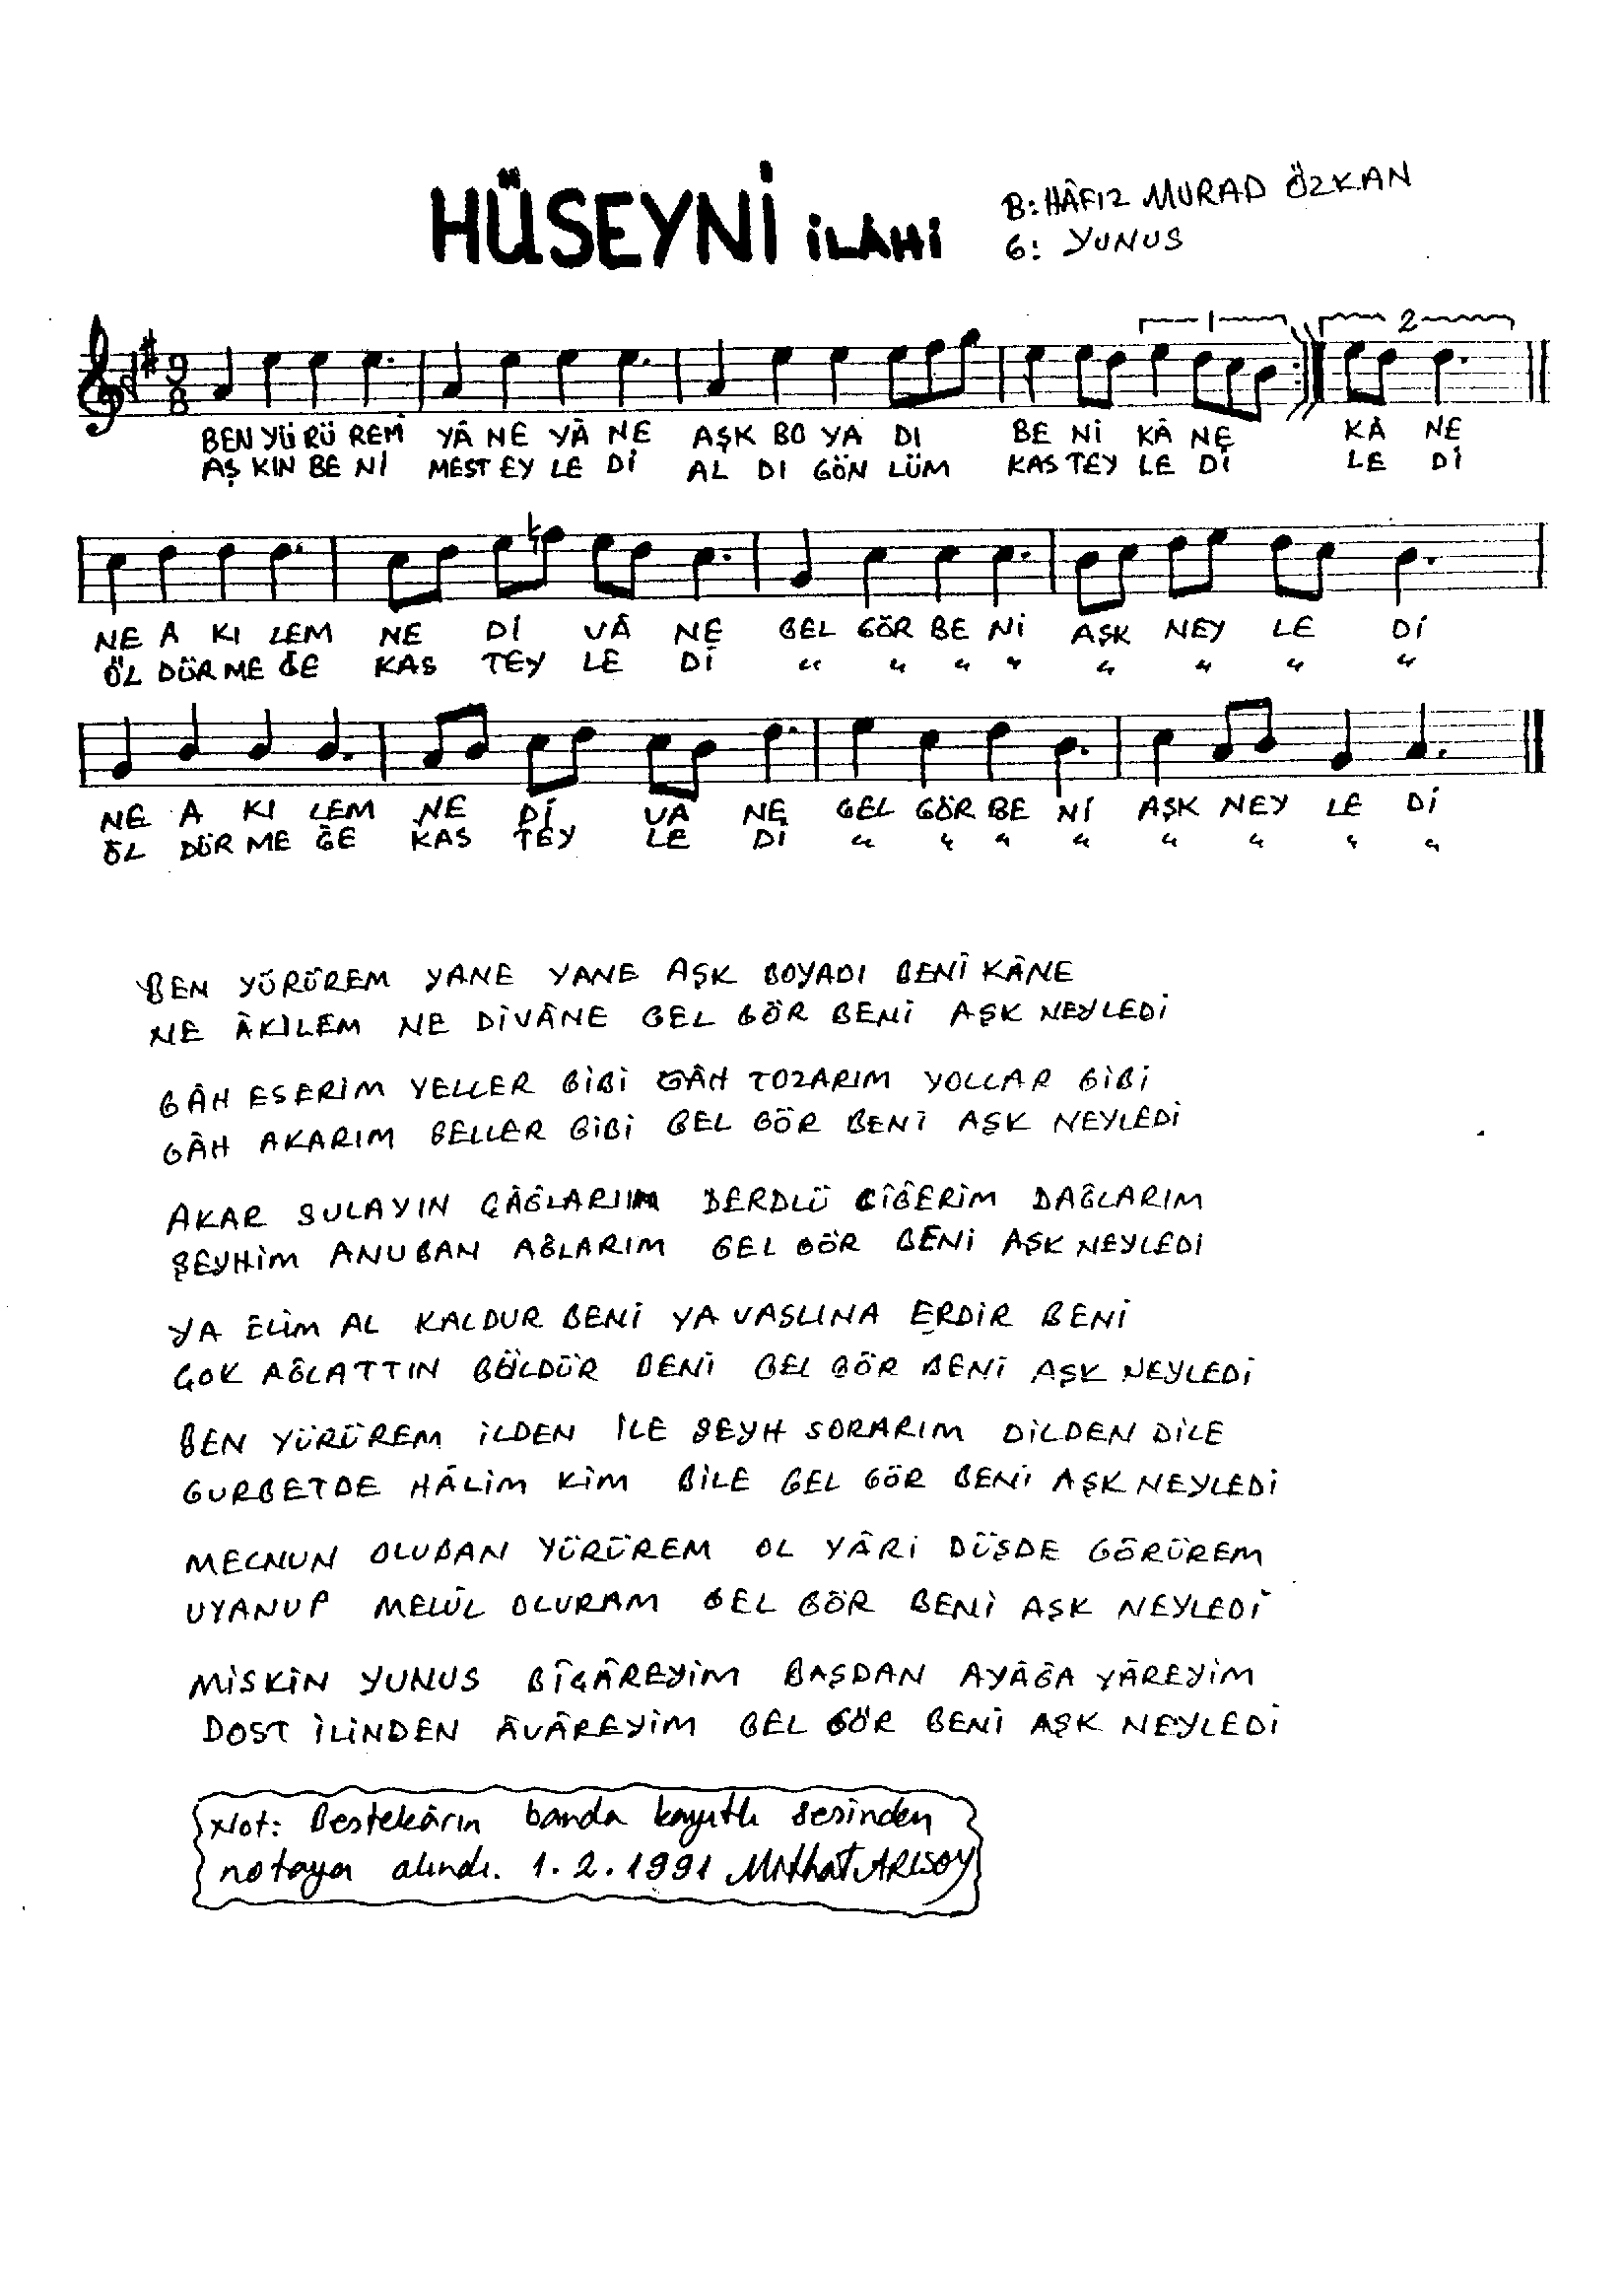 HÜSEYNİ İLÂHİ
B: HÂFIZ MURAD ÖZKAN
G: YUNUS
9
8
1
2
BEN YÜ RÜ REM YÂ NE YÂ NE AŞK BO YA DI BE Nİ KÂ NE KÂ NE
AŞ KIN BE Nİ MEST EY LE Dİ AL DI GÖN LÜM KAS TEY LE Dİ LE Dİ
NE A KI LEM NE Dİ VÂ NE GEL GÖR BE Nİ AŞK NEY LE Dİ
ÖL DÜR ME ĞE KAS TEY LE Dİ " " " " " " " "
NE A KI LEM NE Dİ VA NE GEL GÖR BE Nİ AŞK NEY LE Dİ
ÖL DÜR ME ĞE KAS TEY LE Dİ " " " " " " " "
BEN YÜRÜREM YANE YANE AŞK BOYADI BENİ KÂNE
NE ÂKILEM NE DİVÂNE GEL GÖR BENİ AŞK NEYLEDİ
GÂH ESERİM YELLER GİBİ GÂH TOZARIM YOLLAR GİBİ
GÂH AKARIM SELLER GİBİ GEL GÖR BENİ AŞK NEYLEDİ
AKAR SULAYIN ÇAĞLARIM DERDLÜ CİĞERİM DAĞLARIM
ŞEYHİM ANUBAN AĞLARIM GEL GÖR BENİ AŞK NEYLEDİ
YA ELİM AL KALDUR BENİ YA VASLINA ERDİR BENİ
ÇOK AĞLATTIN GÜLDÜR BENİ GEL GÖR BENİ AŞK NEYLEDİ
BEN YÜRÜREM İLDEN İLE ŞEYH SORARIM DİLDEN DİLE
GURBETDE HÂLİM KİM BİLE GEL GÖR BENİ AŞK NEYLEDİ
MECNUN OLUBAN YÜRÜREM OL YÂRİ DÜŞDE GÖRÜREM
UYANUP MELÛL OLURAM GEL GÖR BENİ AŞK NEYLEDİ
MİSKİN YUNUS BÎÇÂREYİM BAŞDAN AYÂĞA YÂREYİM
DOST İLİNDEN ÂVÂREYİM GEL GÖR BENİ AŞK NEYLEDİ
Not: Bestekârın banda kayıtlı sesinden
notaya alındı. 1.2.1991 Mithat ARISOY